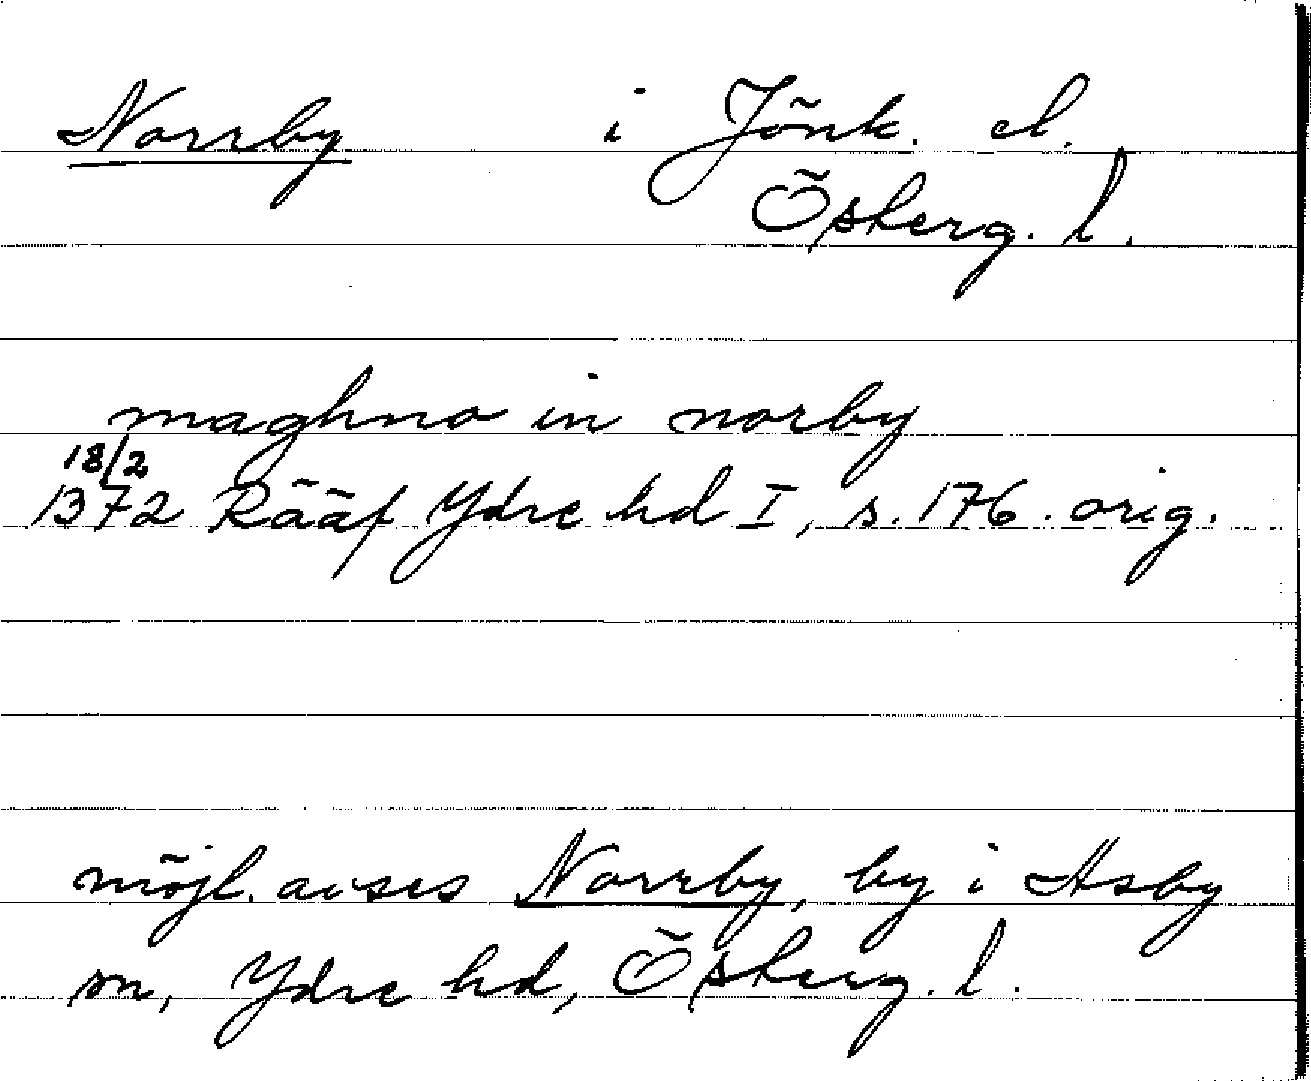 Norrby i Jönk. el.
Österg. l.
maghno in norby
18/2
1372 Rääf Ydre hd I, s. 176. orig.
möjl. avses Norrby, by i Asby
sn, Ydre hd, Österg. l.